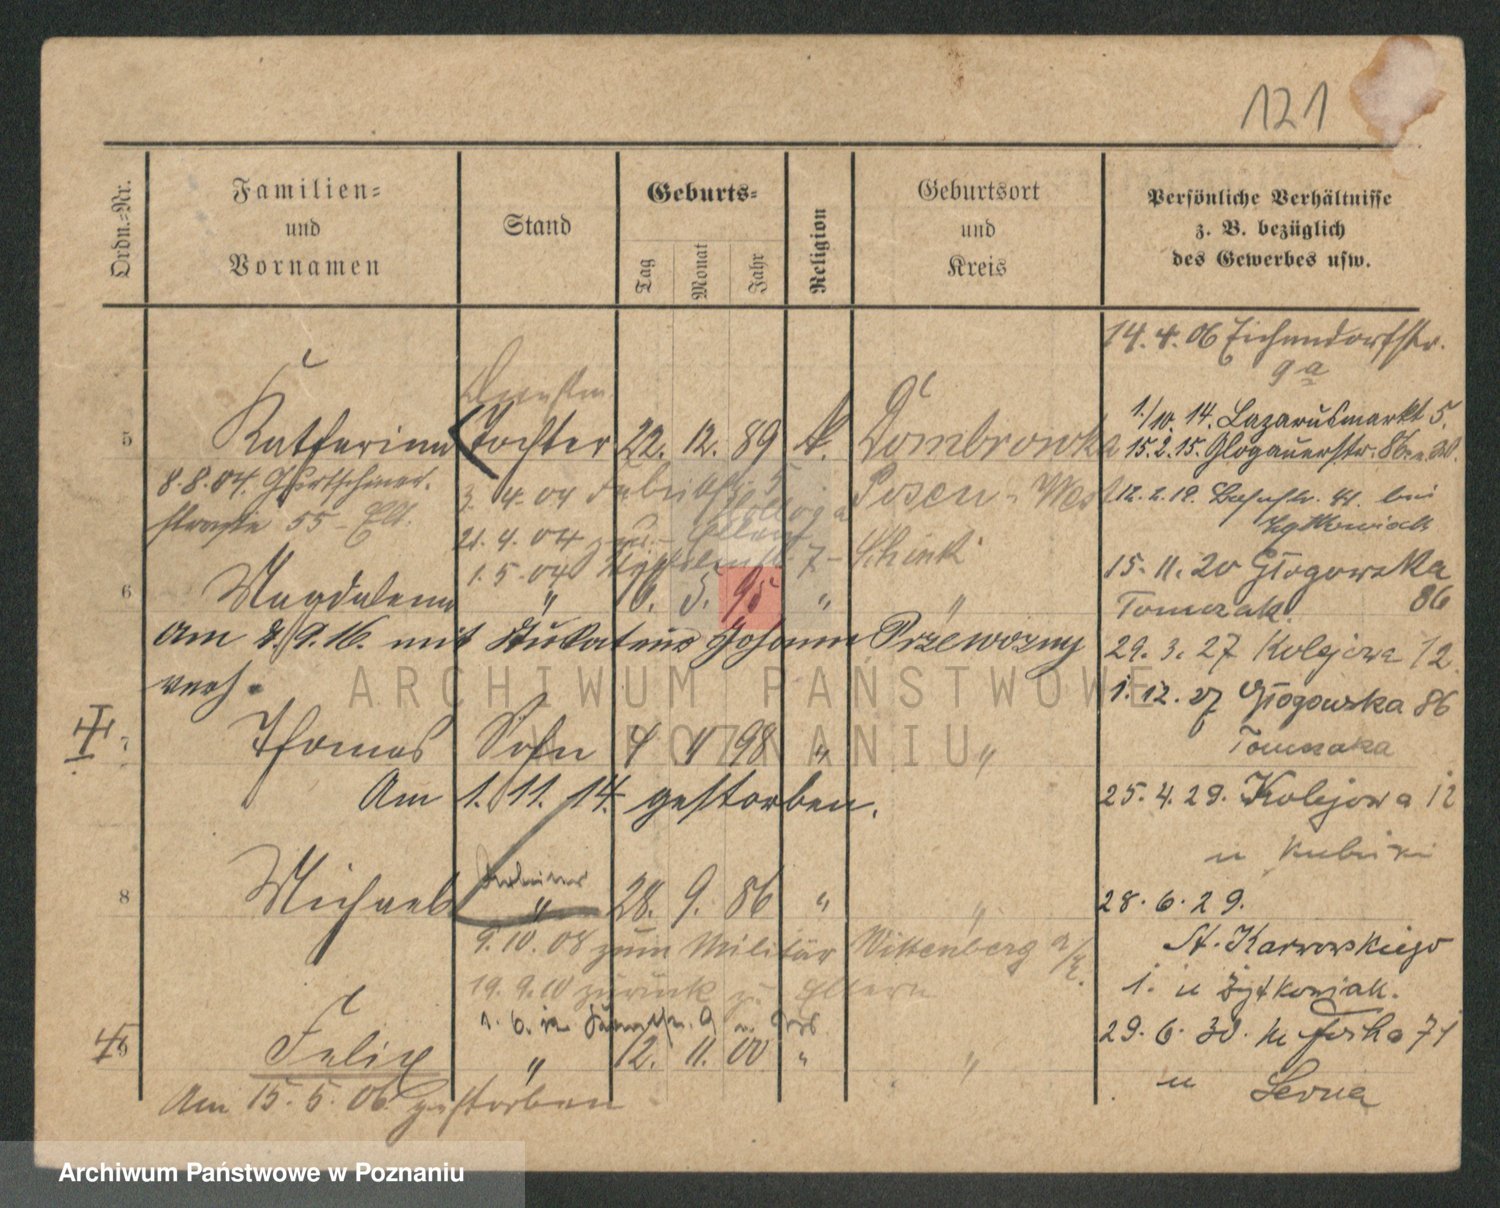 121
Ordn.-Nr.
Familien-
und
Vornamen
Stand
Geburts-
Tag
Monat
Jahr
Religion
Geburtsort
und
Kreis
Persönliche Verhältnisse
z. B. bezüglich
des Gewerbes usw.
14. 4. 06 Eichendorffstr.
9a
1./10. 14. Lazarusmarkt 5.
5 Katharina Tochter 22. 12. 89 k. Dombrowka
15. 2. 15. Glogauerstr. 86
8. 8. 04. Gurtschiner-
3. 4. 04 Fabrikstr. 5
Posen-West
strasse 55 - Elt.
21. 4. 04 zu Eltern
1. 5. 04 7 - Schenk
6 Magdalena " 6. 5. 95 " "
15. 11. 20 Głogowska
86
Tomczak.
Am 2./9. 16. mit Johann Przewozny
verh.
29. 3. 27 Kolejowa 12
1. 12. 27 Głogowska 86
Tomczaka
7 Thomas Sohn 4 11 98 " "
Am 1. 11. 14. gestorben.
25. 4. 29. Kolejowa 12
u Kubicki
8 Michael Arbeiter " 28. 9. 86 " "
28. 6. 29.
9. 10. 08 zum Militär Wittenberg
St. Karwowskiego
19. 9. 10 zurück z. Eltern
1. u Żytkowiak.
9 Felix " 12. 11. 00 " "
29. 6. 30. 71
Am 15. 5. 06. gestorben
u
ARCHIWUM PAŃSTWOWE
W POZNANIU
Archiwum Państwowe w Poznaniu